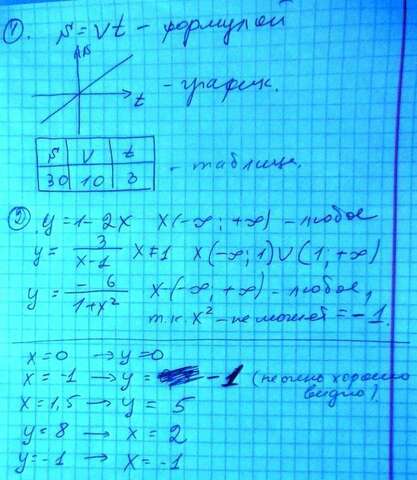 1). S = Vt - формулой
S
t
- график.
S V t
30 10 3
- таблица.
2) y = 1 - 2x x(-∞; +∞) - любое
y = 3/(x-1) x≠1 x(-∞; 1) ∪ (1; +∞)
y = - 6/(1+x²) x-(-∞; +∞) - любое,
т.к. x² - не может = -1.
x = 0 → y = 0
x = -1 → y = -1 (не очень хорошо видно)
x = 1,5 → y = 5
y = 8 → x = 2
y = -1 → x = -1